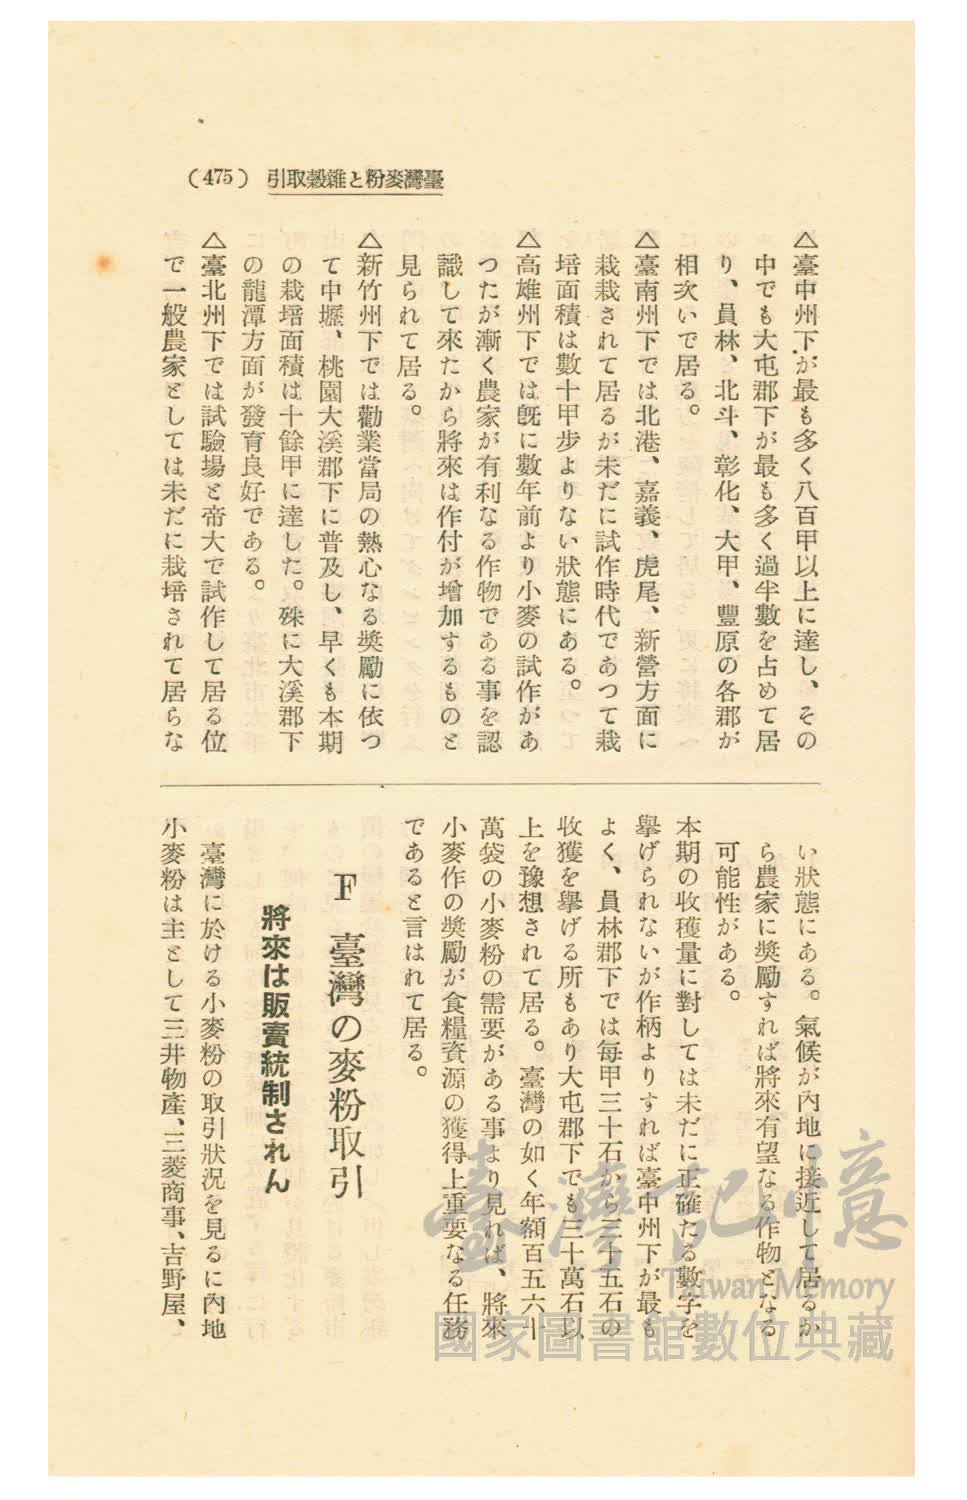 (475) 引取穀雜と粉麥灣臺
△臺中州下が最も多く八百甲以上に達し、その
中でも大屯郡下が最も多く過半數を占めて居
り、員林、北斗、彰化、大甲、豐原の各郡が
相次いで居る。
△臺南州下では北港、嘉義、虎尾、新營方面に
栽栽されて居るが未だに試作時代であつて栽
培面積は數十甲步よりない狀態にある。
△高雄州下では既に數年前より小麥の試作があ
つたが漸く農家が有利なる作物である事を認
識して來たから將來は作付が增加するものと
見られて居る。
△新竹州下では勸業當局の熱心なる奬勵に依つ
て中壢、桃園大溪郡下に普及し、早くも本期
の栽培面積は十餘甲に達した。殊に大溪郡下
の龍潭方面が發育良好である。
△臺北州下では試驗場と帝大で試作して居る位
で一般農家としては未だに栽培されて居らな
い狀態にある。氣候が內地に接近して居るか
ら農家に奬勵すれば將來有望なる作物となる
可能性がある。
本期の收穫量に對しては未だに正確たる數字を
擧げられないが作柄よりすれば臺中州下が最も
よく、員林郡下では每甲三十石から三十五石の
收獲を擧げる所もあり大屯郡下でも三十萬石以
上を豫想されて居る。臺灣の如く年額百五六十
萬袋の小麥粉の需要がある事より見れば、將來
小麥作の奬勵が食糧資源の獲得上重要なる任務
であると言はれて居る。
F 臺灣の麥粉取引
將來は販賣統制されん
臺灣に於ける小麥粉の取引狀況を見るに內地
小麥粉は主として三井物產、三菱商事、吉野屋、
臺灣記憶
Taiwan Memory
國家圖書館數位典藏